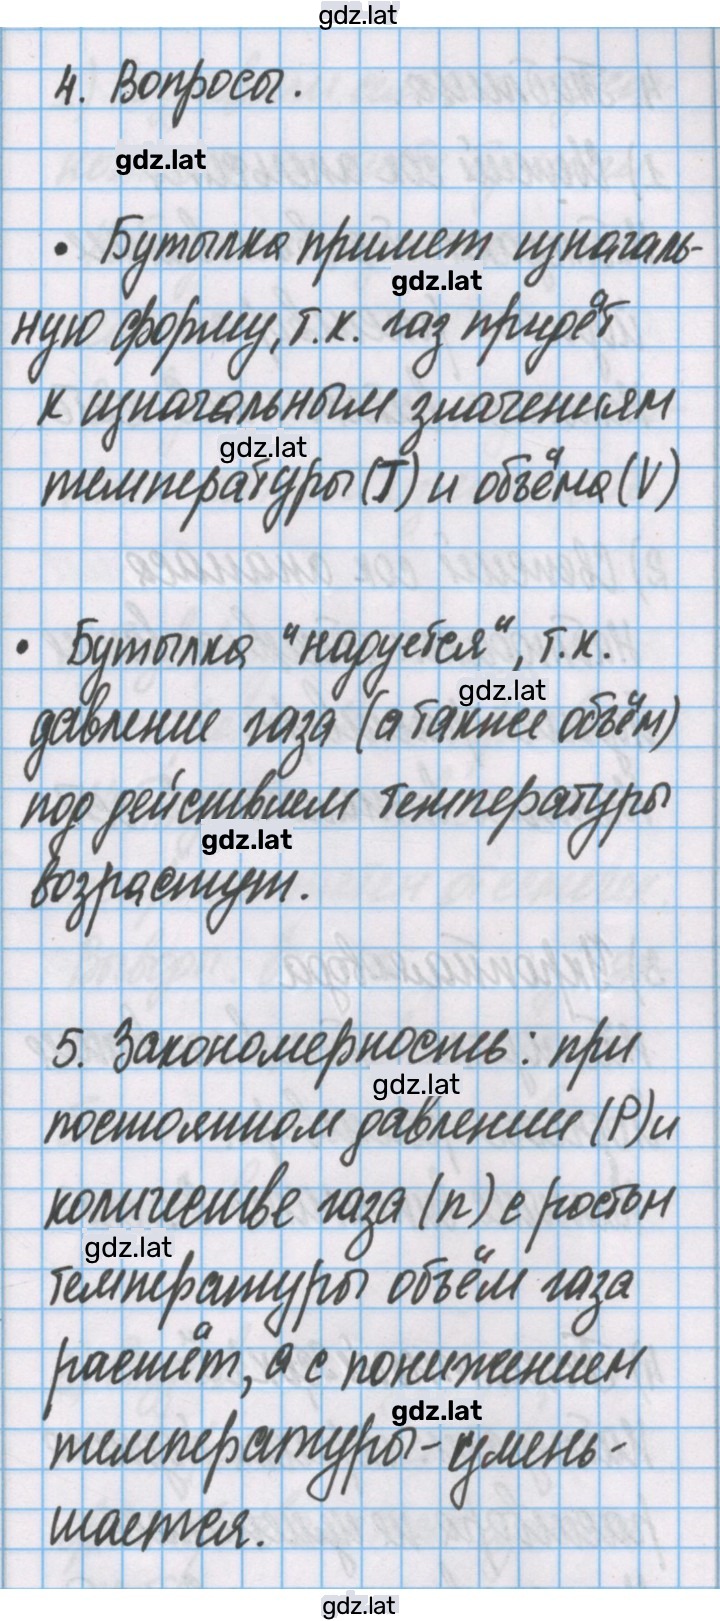 gdz.lat
4. Вопросы.
gdz.lat
• Бутылка примет изначаль-
gdz.lat
ную форму, т.к. газ придёт
к изначальным значениям
gdz.lat
температуры (T) и объёма (V)
• Бутылка "надуется", т.к.
gdz.lat
давление газа (а также объём)
под действием температуры
gdz.lat
возрастут.
5. Закономерность: при
gdz.lat
постоянном давлении (P) и
количестве газа (n) с ростом
gdz.lat
температуры объём газа
растёт, а с понижением
gdz.lat
температуры - умень-
шается.
gdz.lat